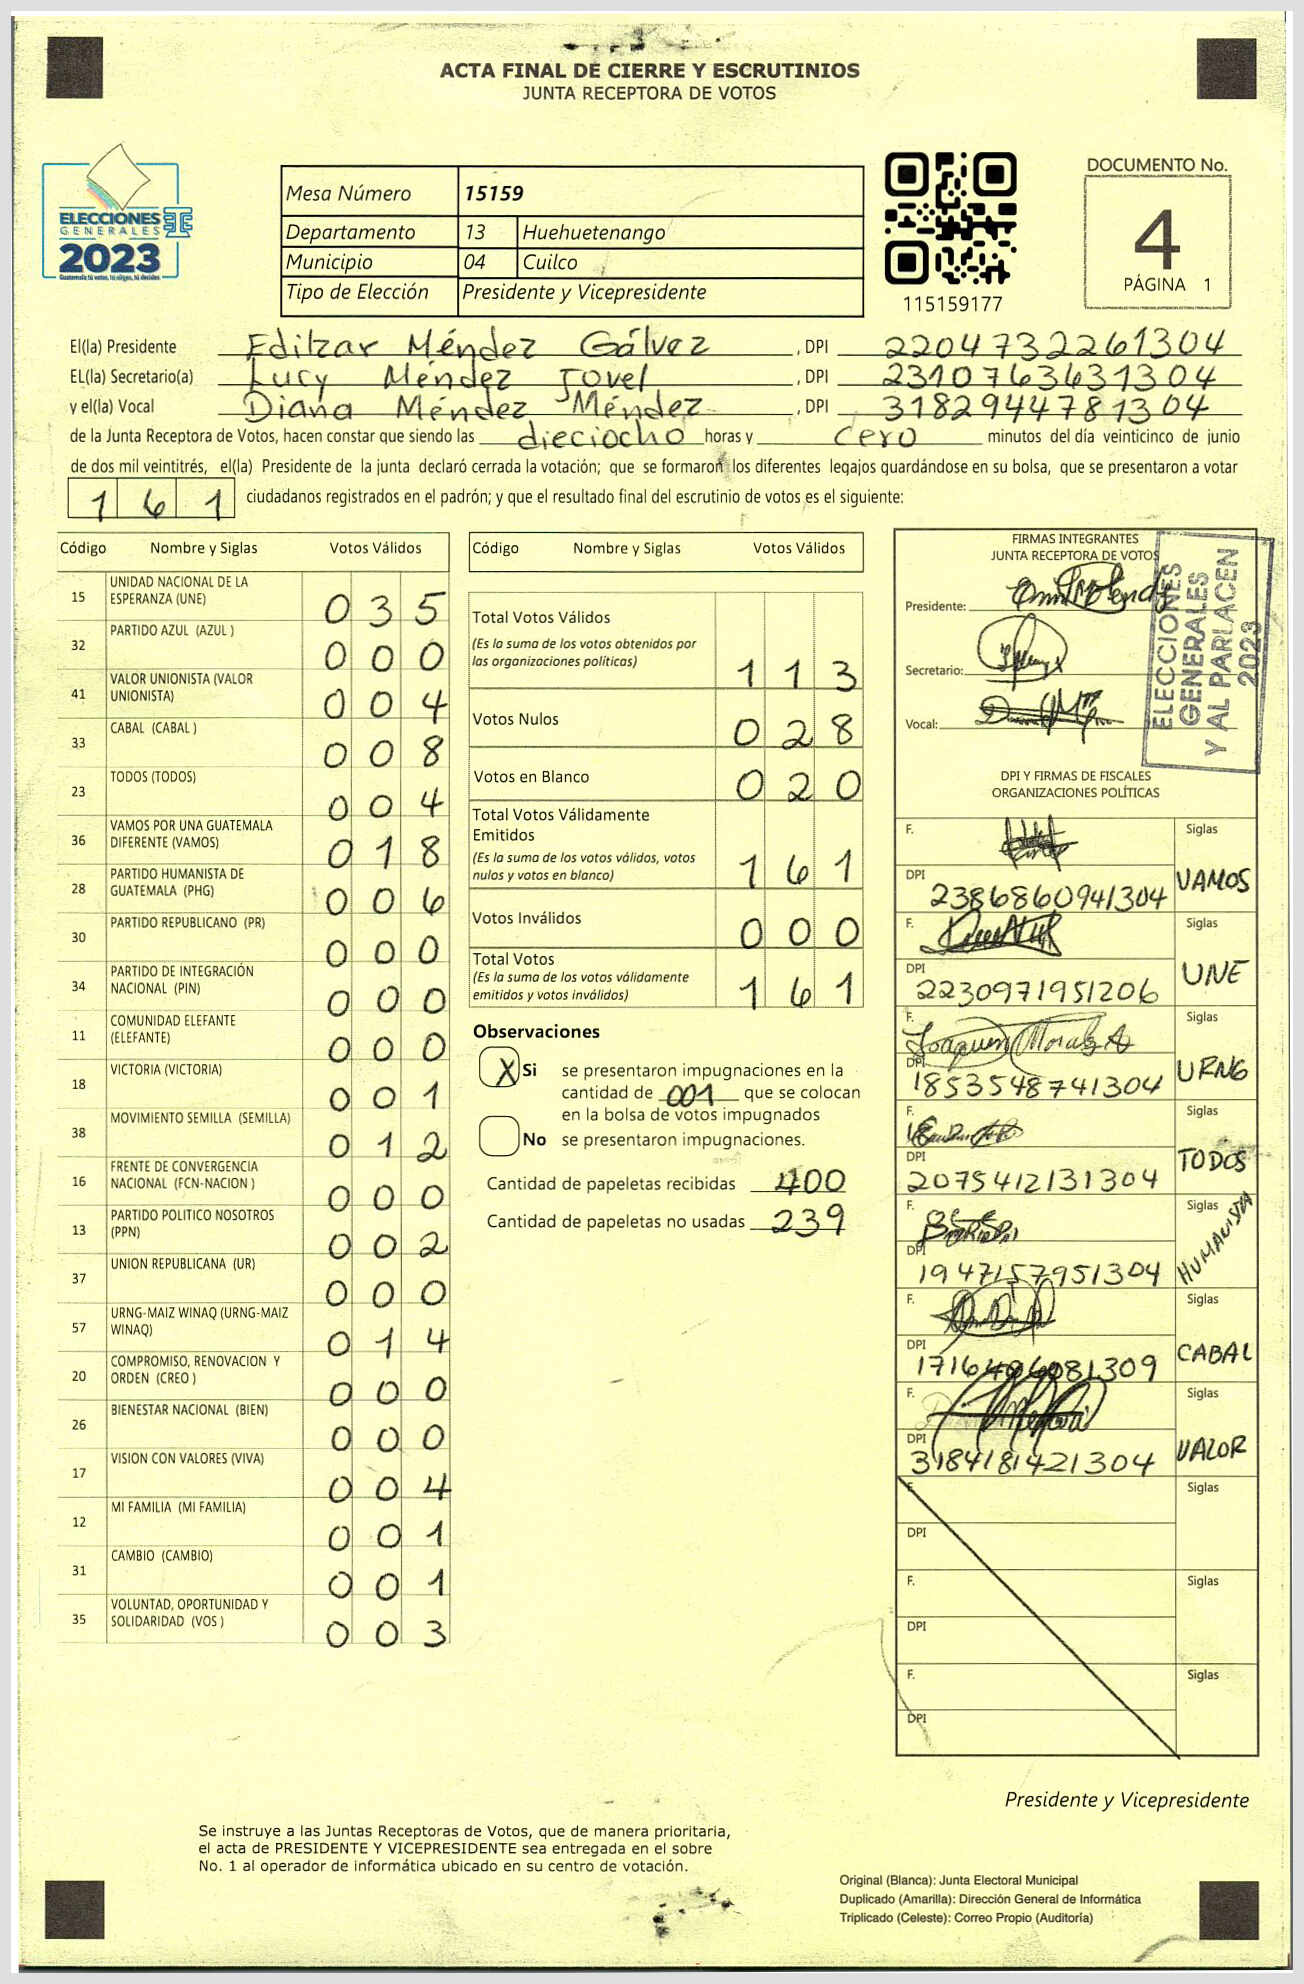 ACTA FINAL DE CIERRE Y ESCRUTINIOS
JUNTA RECEPTORA DE VOTOS
ELECCIONES
GENERALES
2023
Guatemala tú votas, tú eliges, tú decides.
Mesa Número 15159
Departamento 13 Huehuetenango
Municipio 04 Cuilco
Tipo de Elección Presidente y Vicepresidente
115159177
DOCUMENTO No.
4
PÁGINA 1
El(la) Presidente Edilzar Méndez Gálvez , DPI 2204732261304
EL(la) Secretario(a) Lucy Méndez Jovel , DPI 2310763631304
y el(la) Vocal Diana Méndez Méndez , DPI 3182944781304
de la Junta Receptora de Votos, hacen constar que siendo las dieciocho horas y cero minutos del día veinticinco de junio
de dos mil veintitrés, el(la) Presidente de la junta declaró cerrada la votación; que se formaron los diferentes legajos guardándose en su bolsa, que se presentaron a votar
161 ciudadanos registrados en el padrón; y que el resultado final del escrutinio de votos es el siguiente:
Código Nombre y Siglas Votos Válidos
15 UNIDAD NACIONAL DE LA
ESPERANZA (UNE) 035
32 PARTIDO AZUL (AZUL ) 000
41 VALOR UNIONISTA (VALOR
UNIONISTA) 004
33 CABAL (CABAL ) 008
23 TODOS (TODOS) 004
36 VAMOS POR UNA GUATEMALA
DIFERENTE (VAMOS) 018
28 PARTIDO HUMANISTA DE
GUATEMALA (PHG) 006
30 PARTIDO REPUBLICANO (PR) 000
34 PARTIDO DE INTEGRACIÓN
NACIONAL (PIN) 000
11 COMUNIDAD ELEFANTE
(ELEFANTE) 000
18 VICTORIA (VICTORIA) 001
38 MOVIMIENTO SEMILLA (SEMILLA) 012
16 FRENTE DE CONVERGENCIA
NACIONAL (FCN-NACION ) 000
13 PARTIDO POLITICO NOSOTROS
(PPN) 002
37 UNION REPUBLICANA (UR) 000
57 URNG-MAIZ WINAQ (URNG-MAIZ
WINAQ) 014
20 COMPROMISO, RENOVACION Y
ORDEN (CREO ) 000
26 BIENESTAR NACIONAL (BIEN) 000
17 VISION CON VALORES (VIVA) 004
12 MI FAMILIA (MI FAMILIA) 001
31 CAMBIO (CAMBIO) 001
35 VOLUNTAD, OPORTUNIDAD Y
SOLIDARIDAD (VOS ) 003
Código Nombre y Siglas Votos Válidos
Total Votos Válidos
(Es la suma de los votos obtenidos por
las organizaciones políticas) 113
Votos Nulos 028
Votos en Blanco 020
Total Votos Válidamente
Emitidos
(Es la suma de los votos válidos, votos
nulos y votos en blanco) 161
Votos Inválidos 000
Total Votos
(Es la suma de los votos válidamente
emitidos y votos inválidos) 161
Observaciones
X Si se presentaron impugnaciones en la
cantidad de 001 que se colocan
en la bolsa de votos impugnados
No se presentaron impugnaciones.
Cantidad de papeletas recibidas 400
Cantidad de papeletas no usadas 239
FIRMAS INTEGRANTES
JUNTA RECEPTORA DE VOTOS
Presidente:
Secretario:
Vocal:
ELECCIONES
GENERALES
Y AL PARLACEN
2023
DPI Y FIRMAS DE FISCALES
ORGANIZACIONES POLÍTICAS
F. Siglas
DPI 2386860941304 VAMOS
F. Siglas
DPI 2230971951206 UNE
F. Joaquin Morales A Siglas
DPI 1853548741304 URNG
F. Siglas
DPI 2075412131304 TODOS
F. Siglas
DPI 1947157951304 HUMANISTA
F. Siglas
DPI 1716406081309 CABAL
F. Siglas
DPI 3184181421304 VALOR
F. Siglas
DPI
F. Siglas
DPI
F. Siglas
DPI
Presidente y Vicepresidente
Se instruye a las Juntas Receptoras de Votos, que de manera prioritaria,
el acta de PRESIDENTE Y VICEPRESIDENTE sea entregada en el sobre
No. 1 al operador de informática ubicado en su centro de votación.
Original (Blanca): Junta Electoral Municipal
Duplicado (Amarilla): Dirección General de Informática
Triplicado (Celeste): Correo Propio (Auditoría)